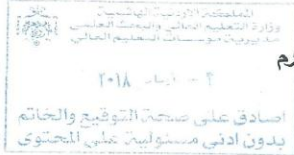 المملكة الاردنية الهاشمية
وزارة التعليم العالي والبحث العلمي
مديرية مؤسسات التعليم العالي
٢٠١٨
اصادق على صحة التوقيع والخاتم
بدون ادنى مسئولية على المحتوى